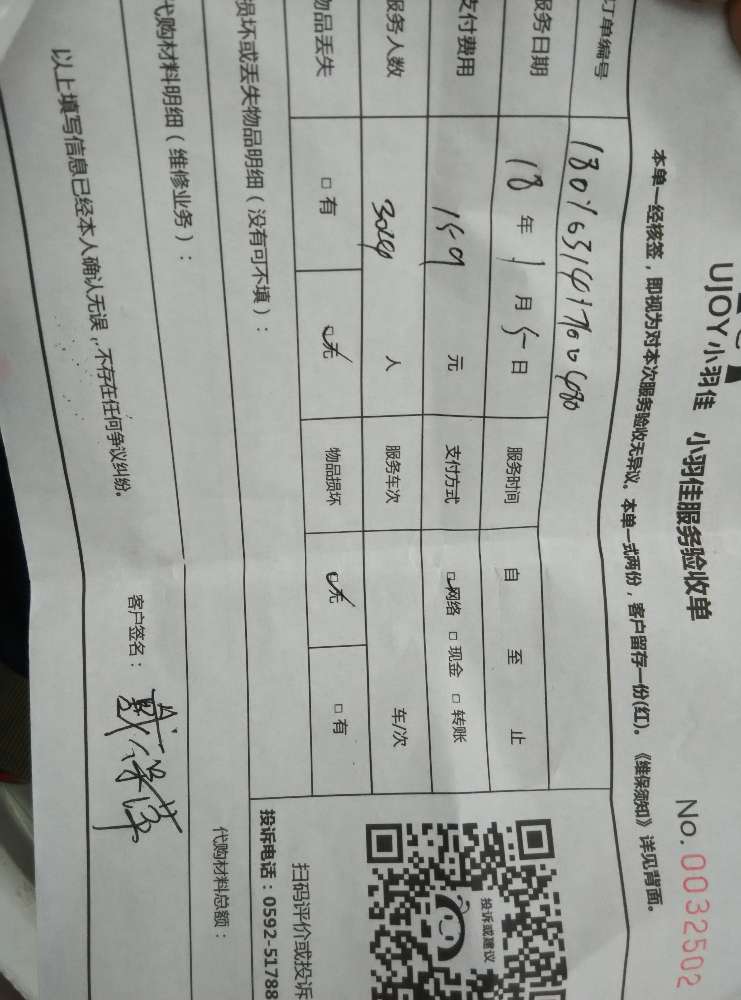 UJOY小羽佳 小羽佳服务验收单
No. 0032502
本单一经核签，即视为对本次服务验收无异议。本单一式两份，客户留存一份(红)。《维保须知》详见背面。
订单编号
服务日期 18年1月5日 服务时间 自 至 止
支付费用 159 元 支付方式 □网络 □现金 □转账
服务人数 人 服务车次 车/次
物品丢失 □有 □无 物品损坏 □无 □有
损坏或丢失物品明细（没有可不填）：
代购材料明细（维修业务）：
代购材料总额：
以上填写信息已经本人确认无误，不存在任何争议纠纷。
客户签名：
投诉或建议
扫码评价或投诉
投诉电话：0592-51788